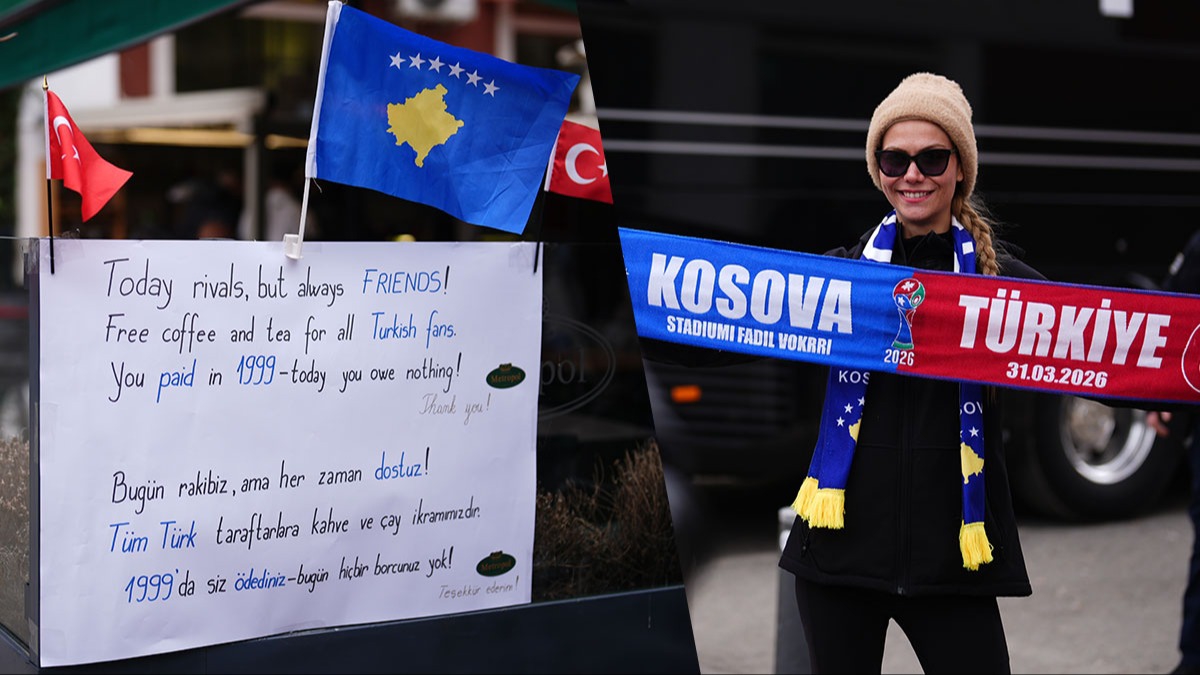 Today rivals, but always FRIENDS!
Free coffee and tea for all Turkish fans.
You paid in 1999-today you owe nothing!
Metropol
Thank you!
Bugün rakibiz, ama her zaman dostuz!
Tüm Türk taraftarlara kahve ve çay ikramımızdır.
1999'da siz ödediniz-bugün hiçbir borcunuz yok!
Metropol
Teşekkür ederim!
KOSOVA
STADIUMI FADIL VOKRRI
2026
TÜRKİYE
31.03.2026